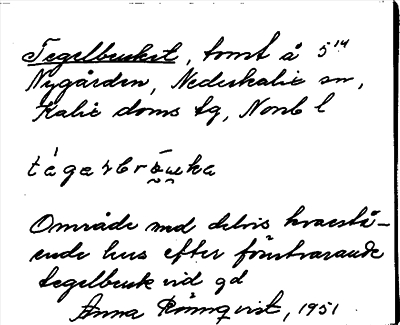 Tegelbruket, tomt å 5¹⁴
Nygården, Nederkalix sn,
Kalix doms tg, Norrb l
Område med delvis kvarstå-
ende hus efter förutvarande
tegelbruk vid gd
Anna Rönnqvist, 1951